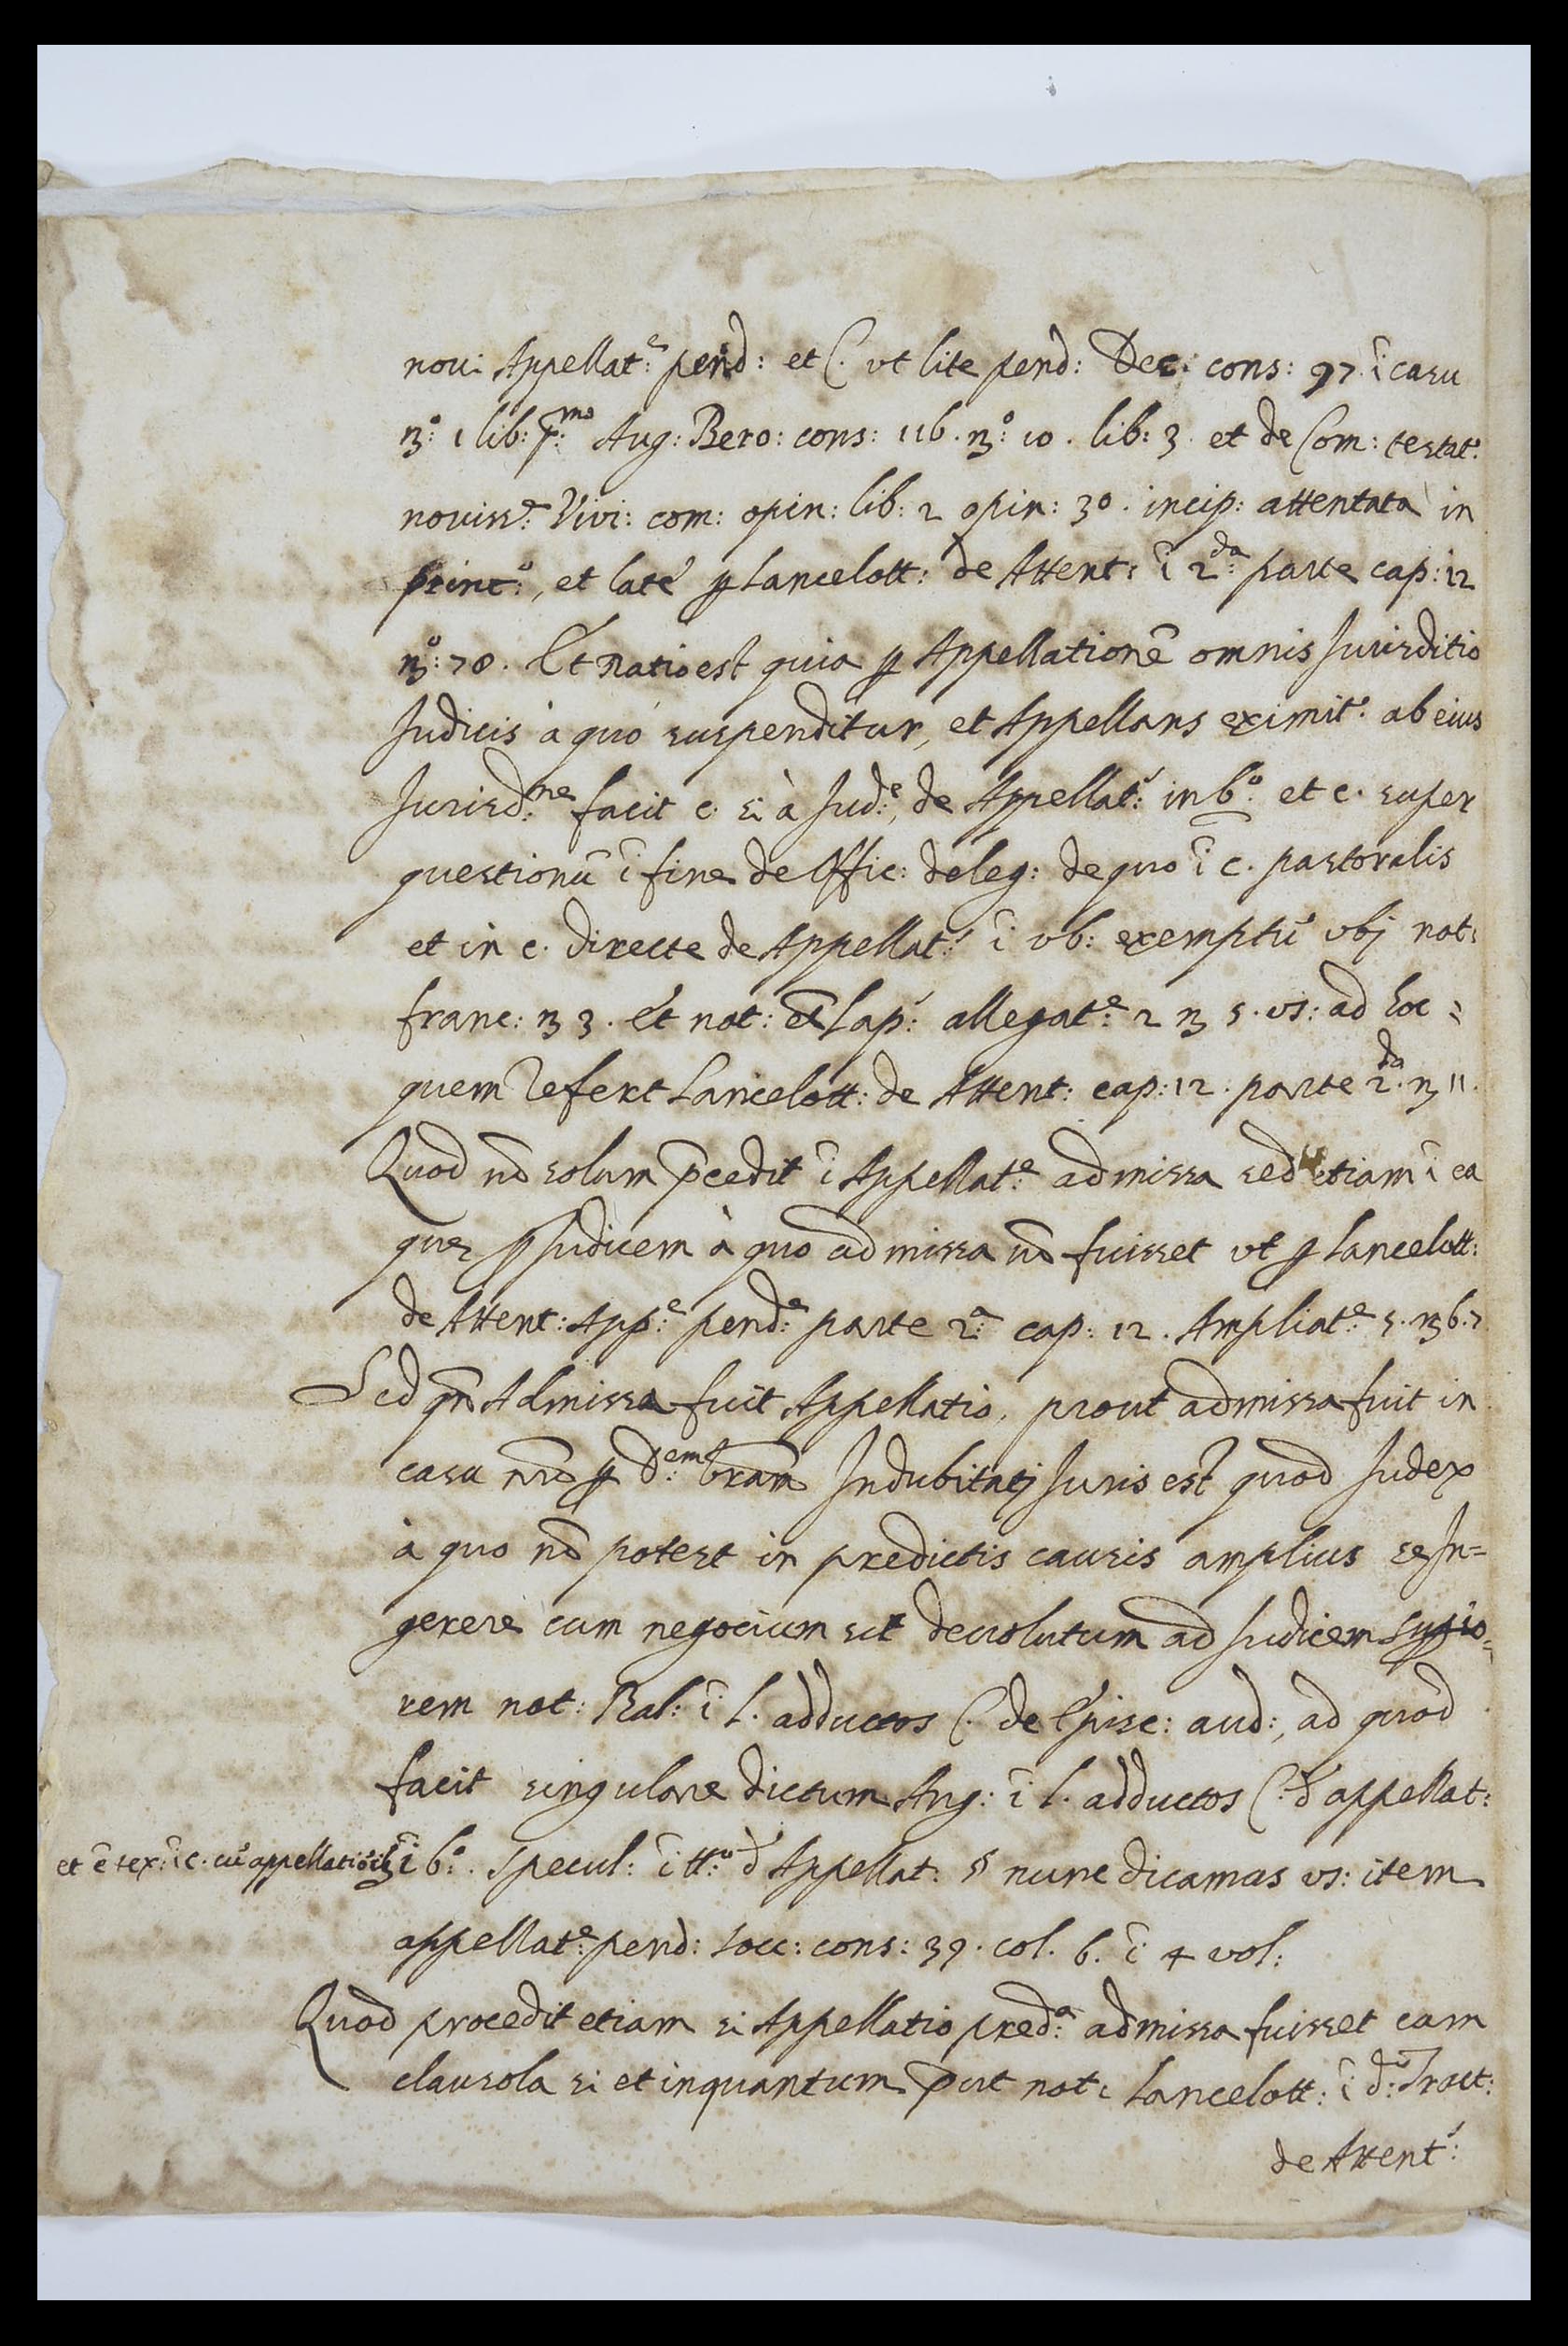 noui Appellat:e pend: et C. vt lite pend: Dec: cons: 97. ĩ casu
n:o 1 lib: p:mo Aug: Bero: cons: 116. n:o 10. lib: 3. et de Com: testat:
nouiss:e Vivi: com: opin: lib: 2 opin: 30. incip: attentata in
princ:o, et laté ꝑ Lancelott: de Attent: ĩ 2:da parte cap: 12
n:o 70. Et ratio est quia ꝑ Appellationẽ omnis Jurisditio
Judicis à quo suspenditur, et Appellans eximit:r ab eius
Jurisd:ne facit c. si à Jud:e, de Appellat: in 6:o et c. super
questionũ ĩ fine de Offic: deleg: de quo ĩ c. pastoralis
et in c. directe de Appellat: ĩ vb: exemptũ vbj not:
franc: n 3. Et not: et Lap: allegat:e 2 n 5. vs: ad hoc
quem refert Lancelott: de Attent: cap: 12. parte 2:da n 11.
Quod nõ solum p̃cedit ĩ Appellat:e admissa sed etiam ĩ ea
que ꝑ Judicem à quo admissa nõ fuisset vt ꝑ Lancelott:
de Attent: App:e pend:e parte 2:a cap: 12. Ampliat:e 5. n 67
Sed qñ Admissa fuit Appellatio, prout admissa fuit in
casu nr̃o ꝑ d:em Indubitatj Juris est quod Judex
à quo nõ potest in predictis causis amplius se In=
gerere cum negocium sit deuolutum ad Judicem suꝑio=
rem not: Bal: ĩ l. adductos C. de Episc: aud:, ad quod
facit singulare dictum Ang: ĩ l. adductos C. d appellat:
et ẽ tex: ĩ c. cũ appellationib ĩ 6:o. Specul: ĩ tt:o d Appellat: § nunc dicamus vs: item
appellat:e pend: Socc: cons: 39. col. 6. ĩ 4 vol:
Quod procedit etiam si Appellatio pred:a admissa fuisset cum
clausola si et inquantum p̃ut not: Lancelott: ĩ d:o Tract:
de Attent: